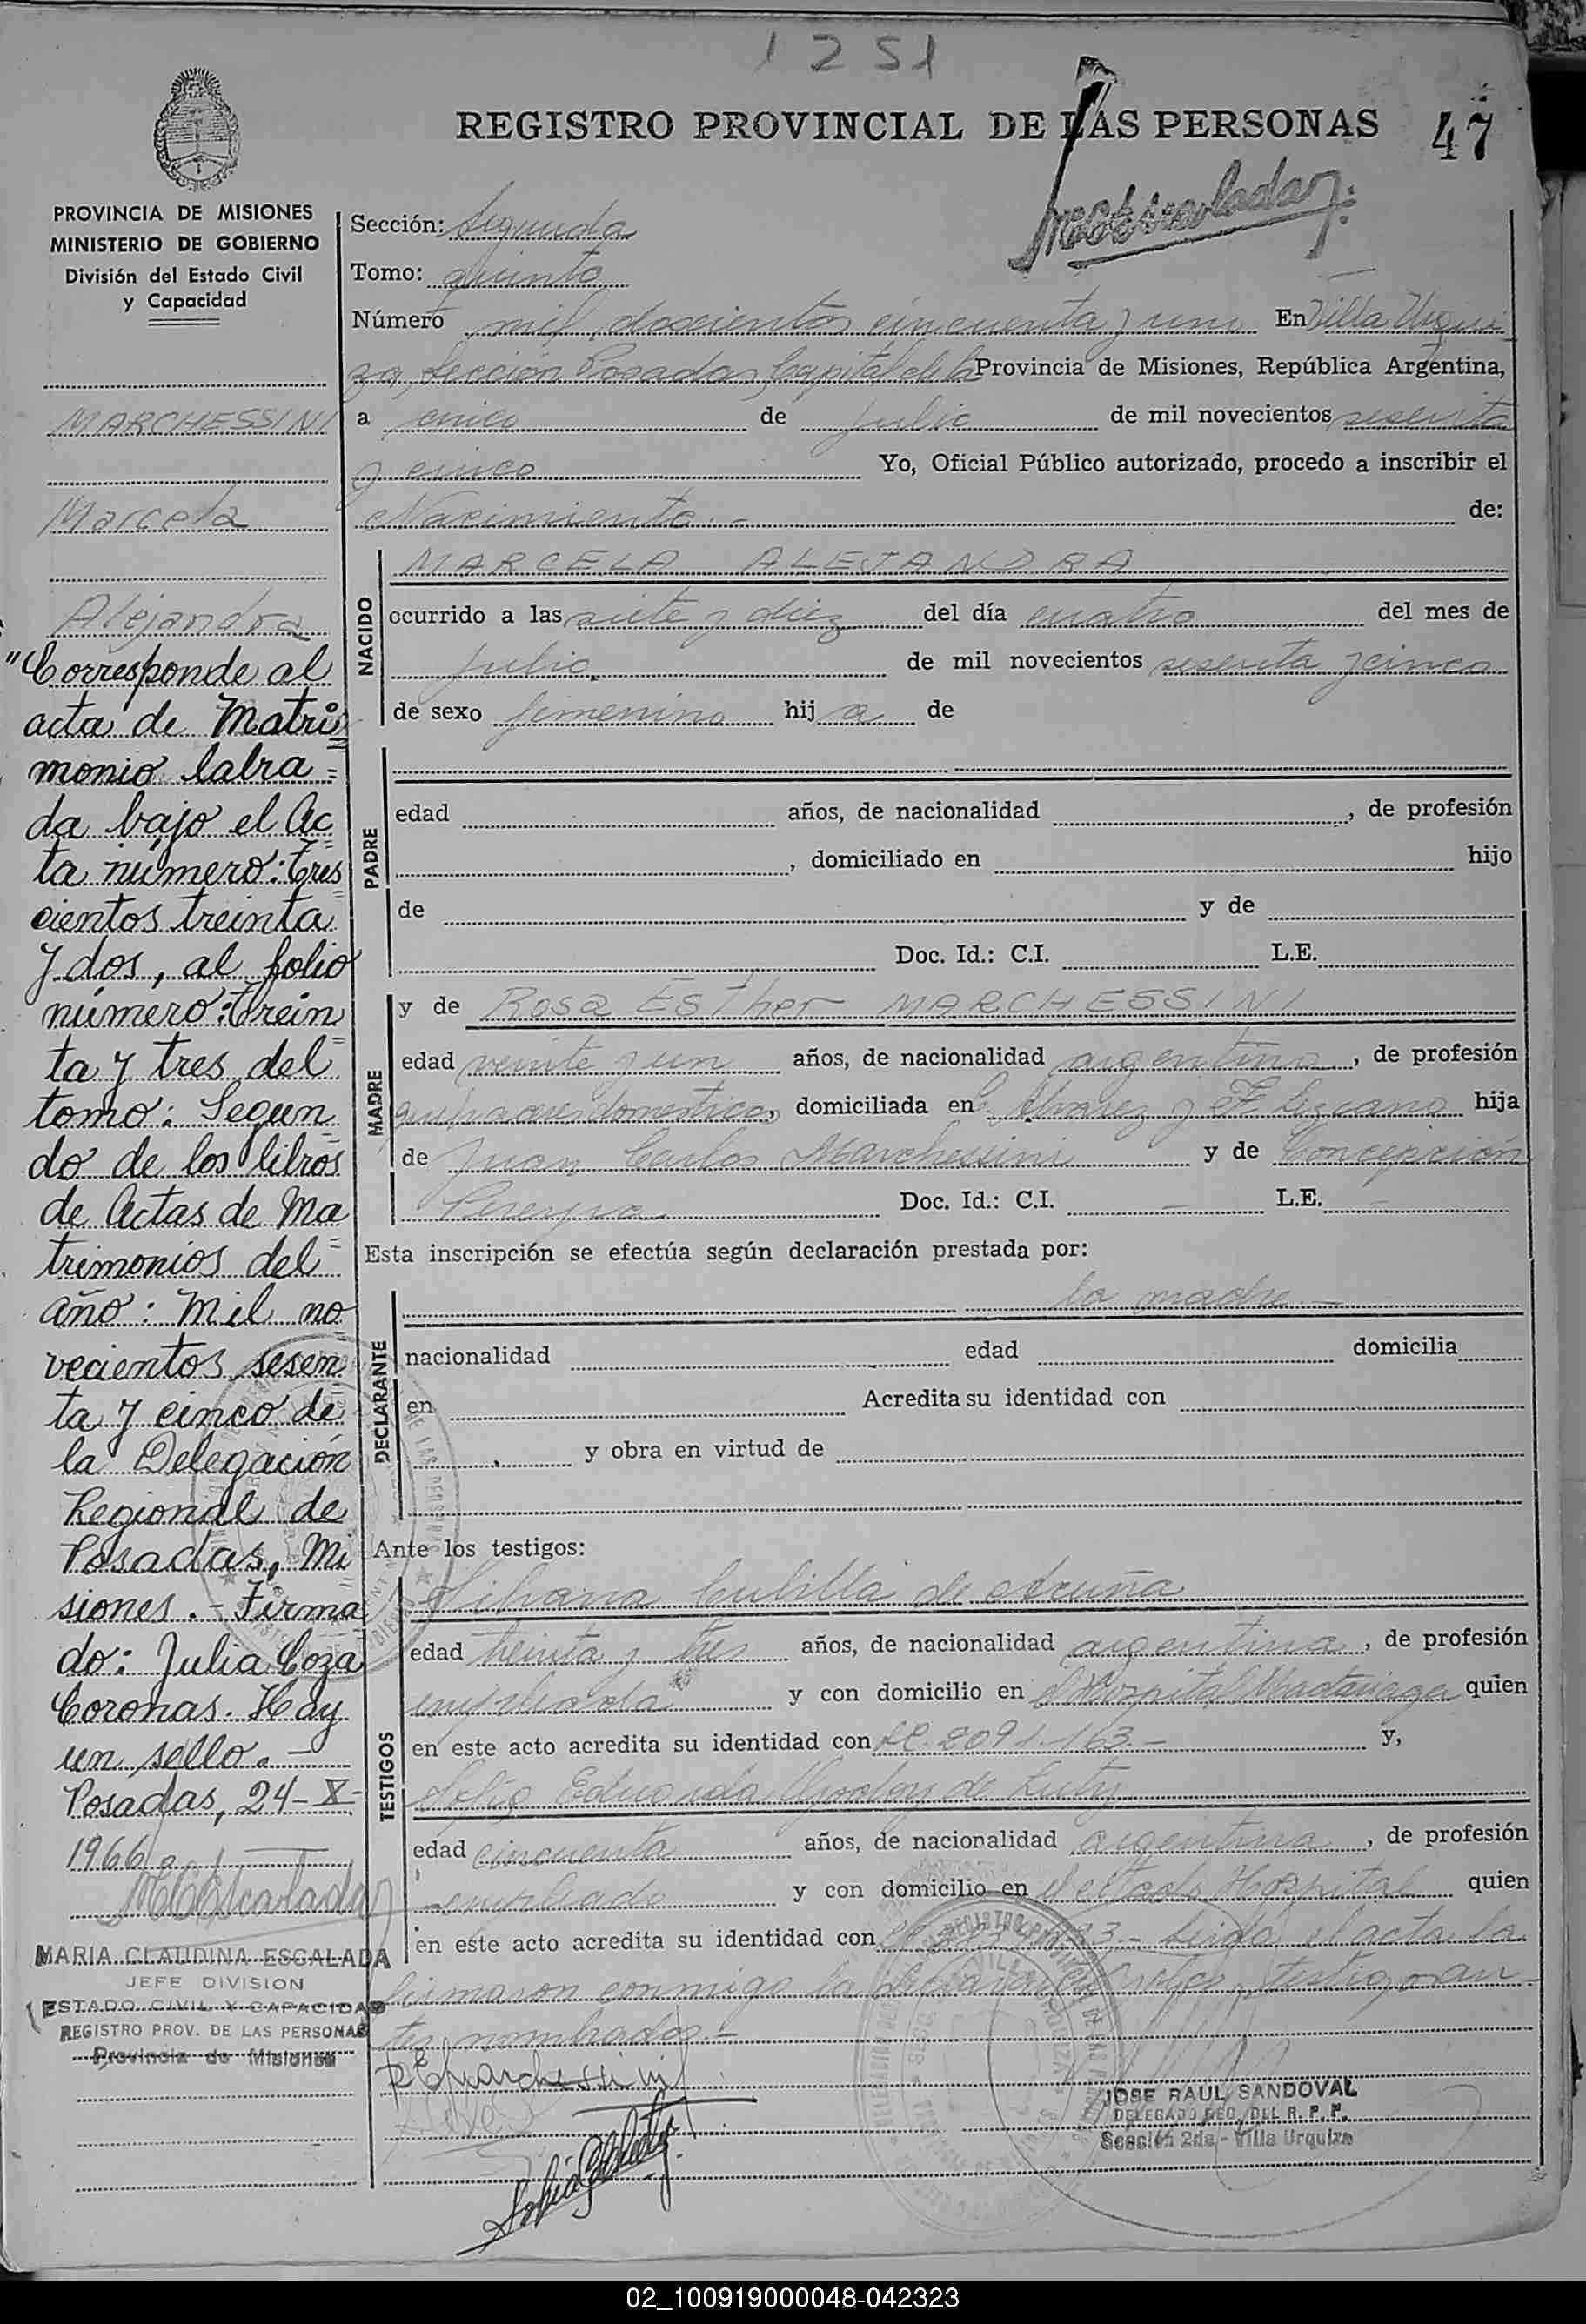 1251
REGISTRO PROVINCIAL DE LAS PERSONAS 47
PROVINCIA DE MISIONES
MINISTERIO DE GOBIERNO
División del Estado Civil
y Capacidad
MARCHESSINI
Marcela
Alejandra
"Corresponde al
acta de Matri
monio labra
da bajo el Ac
ta número: Tres
cientos treinta
y dos, al folio
número: Trein
ta y tres del
tomo: Segun
do de los libros
de Actas de Ma
trimonios del
año: Mil no
vecientos sesen
ta y cinco de
la Delegación
Regional de
Posadas, Mi
siones.- Firma
do: Julia Coza
Coronas. Hay
un sello.-
Posadas, 24-X-
1966
MCEscalada
MARIA CLAUDINA ESCALADA
JEFE DIVISION
ESTADO CIVIL Y CAPACIDAD
REGISTRO PROV. DE LAS PERSONAS
Provincia de Misiones
Sección: Segunda
Tomo: quinto
Número mil doscientos cincuenta y uno En Villa Urqui
za, Sección Posadas, Capital de la Provincia de Misiones, República Argentina,
a cinco de julio de mil novecientos sesenta
y cinco Yo, Oficial Público autorizado, procedo a inscribir el
Nacimiento.- de:
NACIDO
MARCELA ALEJANDRA
ocurrido a las siete y diez del día cuatro del mes de
julio de mil novecientos sesenta y cinco
de sexo femenino hij a de
PADRE
edad años, de nacionalidad , de profesión
, domiciliado en hijo
de y de
Doc. Id.: C.I. L.E.
MADRE
y de Rosa Esther MARCHESSINI
edad veinte y un años, de nacionalidad argentina, de profesión
quehaceres domesticos, domiciliada en Alvarez y F. Lezcano hija
de Juan Carlos Marchessini y de Concepción
Pereyra Doc. Id.: C.I. - L.E. -
Esta inscripción se efectúa según declaración prestada por:
DECLARANTE
la madre.-
nacionalidad edad domicilia
en Acredita su identidad con
y obra en virtud de
Ante los testigos:
TESTIGOS
Silvana Cubilla de Acuña
edad treinta y tres años, de nacionalidad argentina, de profesión
empleada y con domicilio en Hospital Madariaga quien
en este acto acredita su identidad con LC. 2091.163.- y,
Sofía Eduarda de Luty
edad cincuenta años, de nacionalidad argentina, de profesión
empleada y con domicilio en Hospital quien
en este acto acredita su identidad con Leida el acta la
firmaron conmigo la testigos an
tes nombrados.-
REMarchessini
JOSE RAUL SANDOVAL
DELEGADO REG. DEL R. P. P.
Sección 2da - Villa Urquiza
02_100919000048-042323